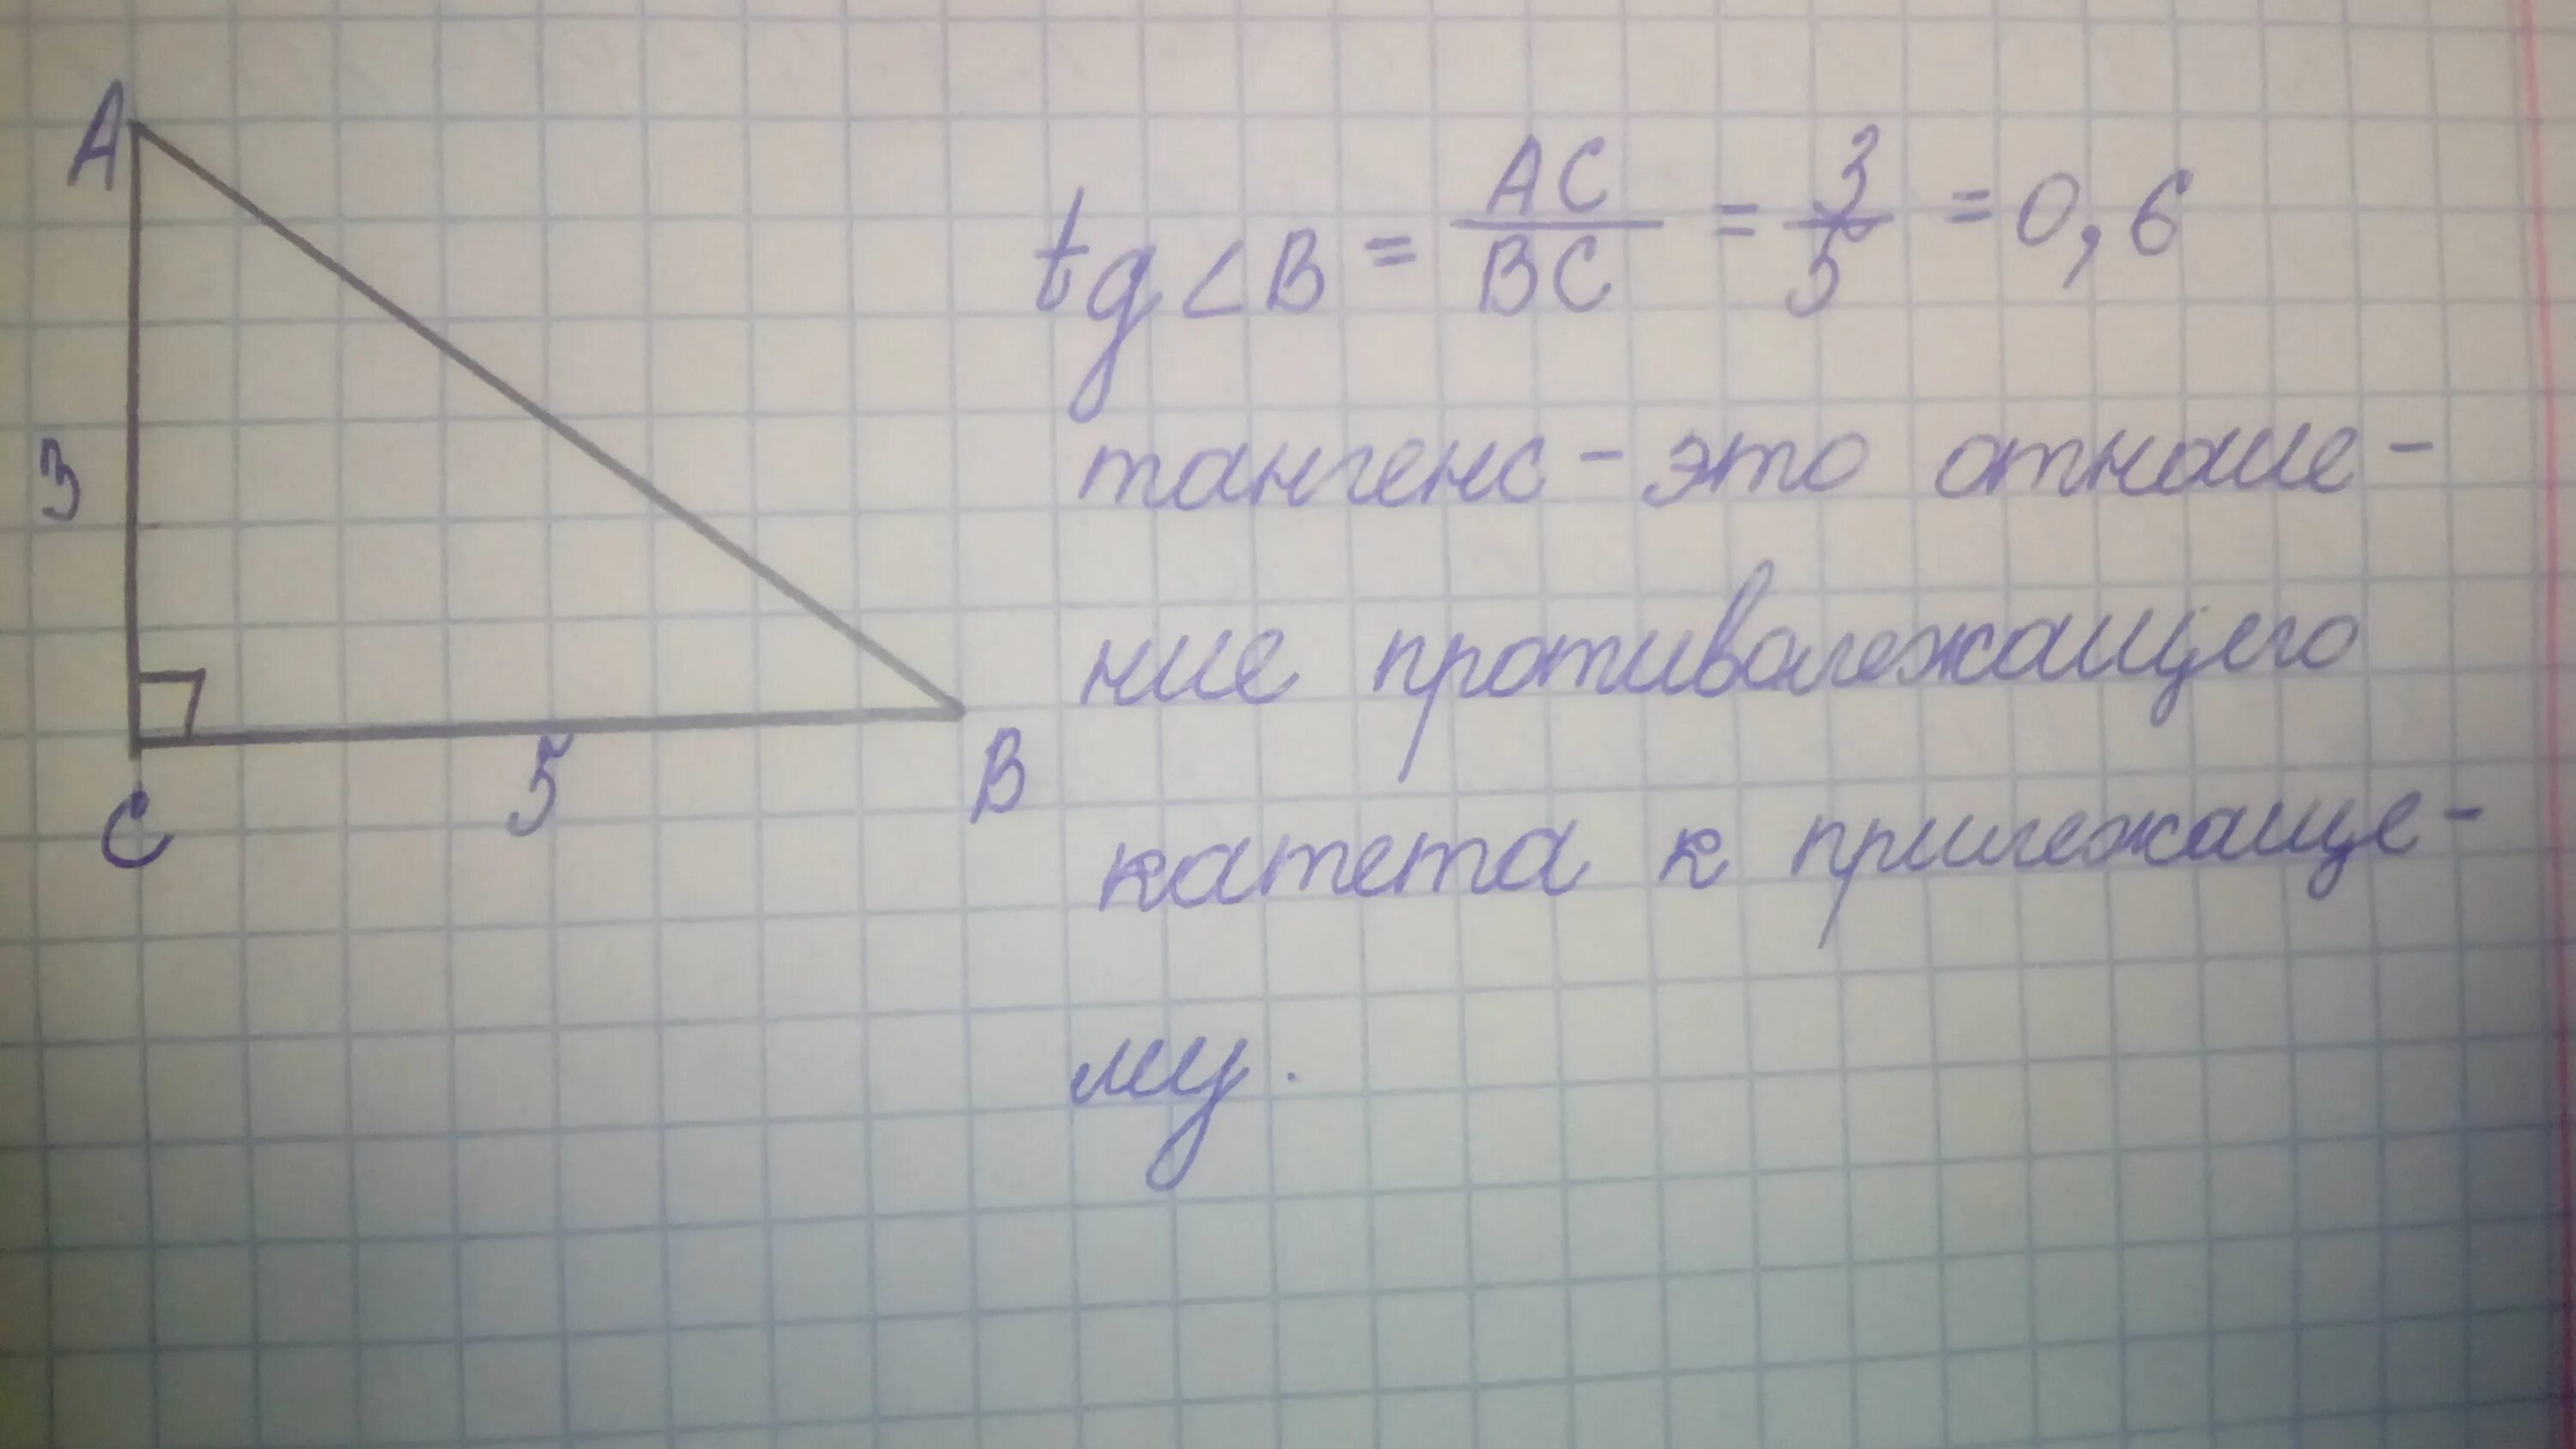 A
3
C
5
B
tg∠B = AC/BC = 3/5 = 0,6
тангенс - это отноше-
ние противолежащего
катета к прилежаще-
му.